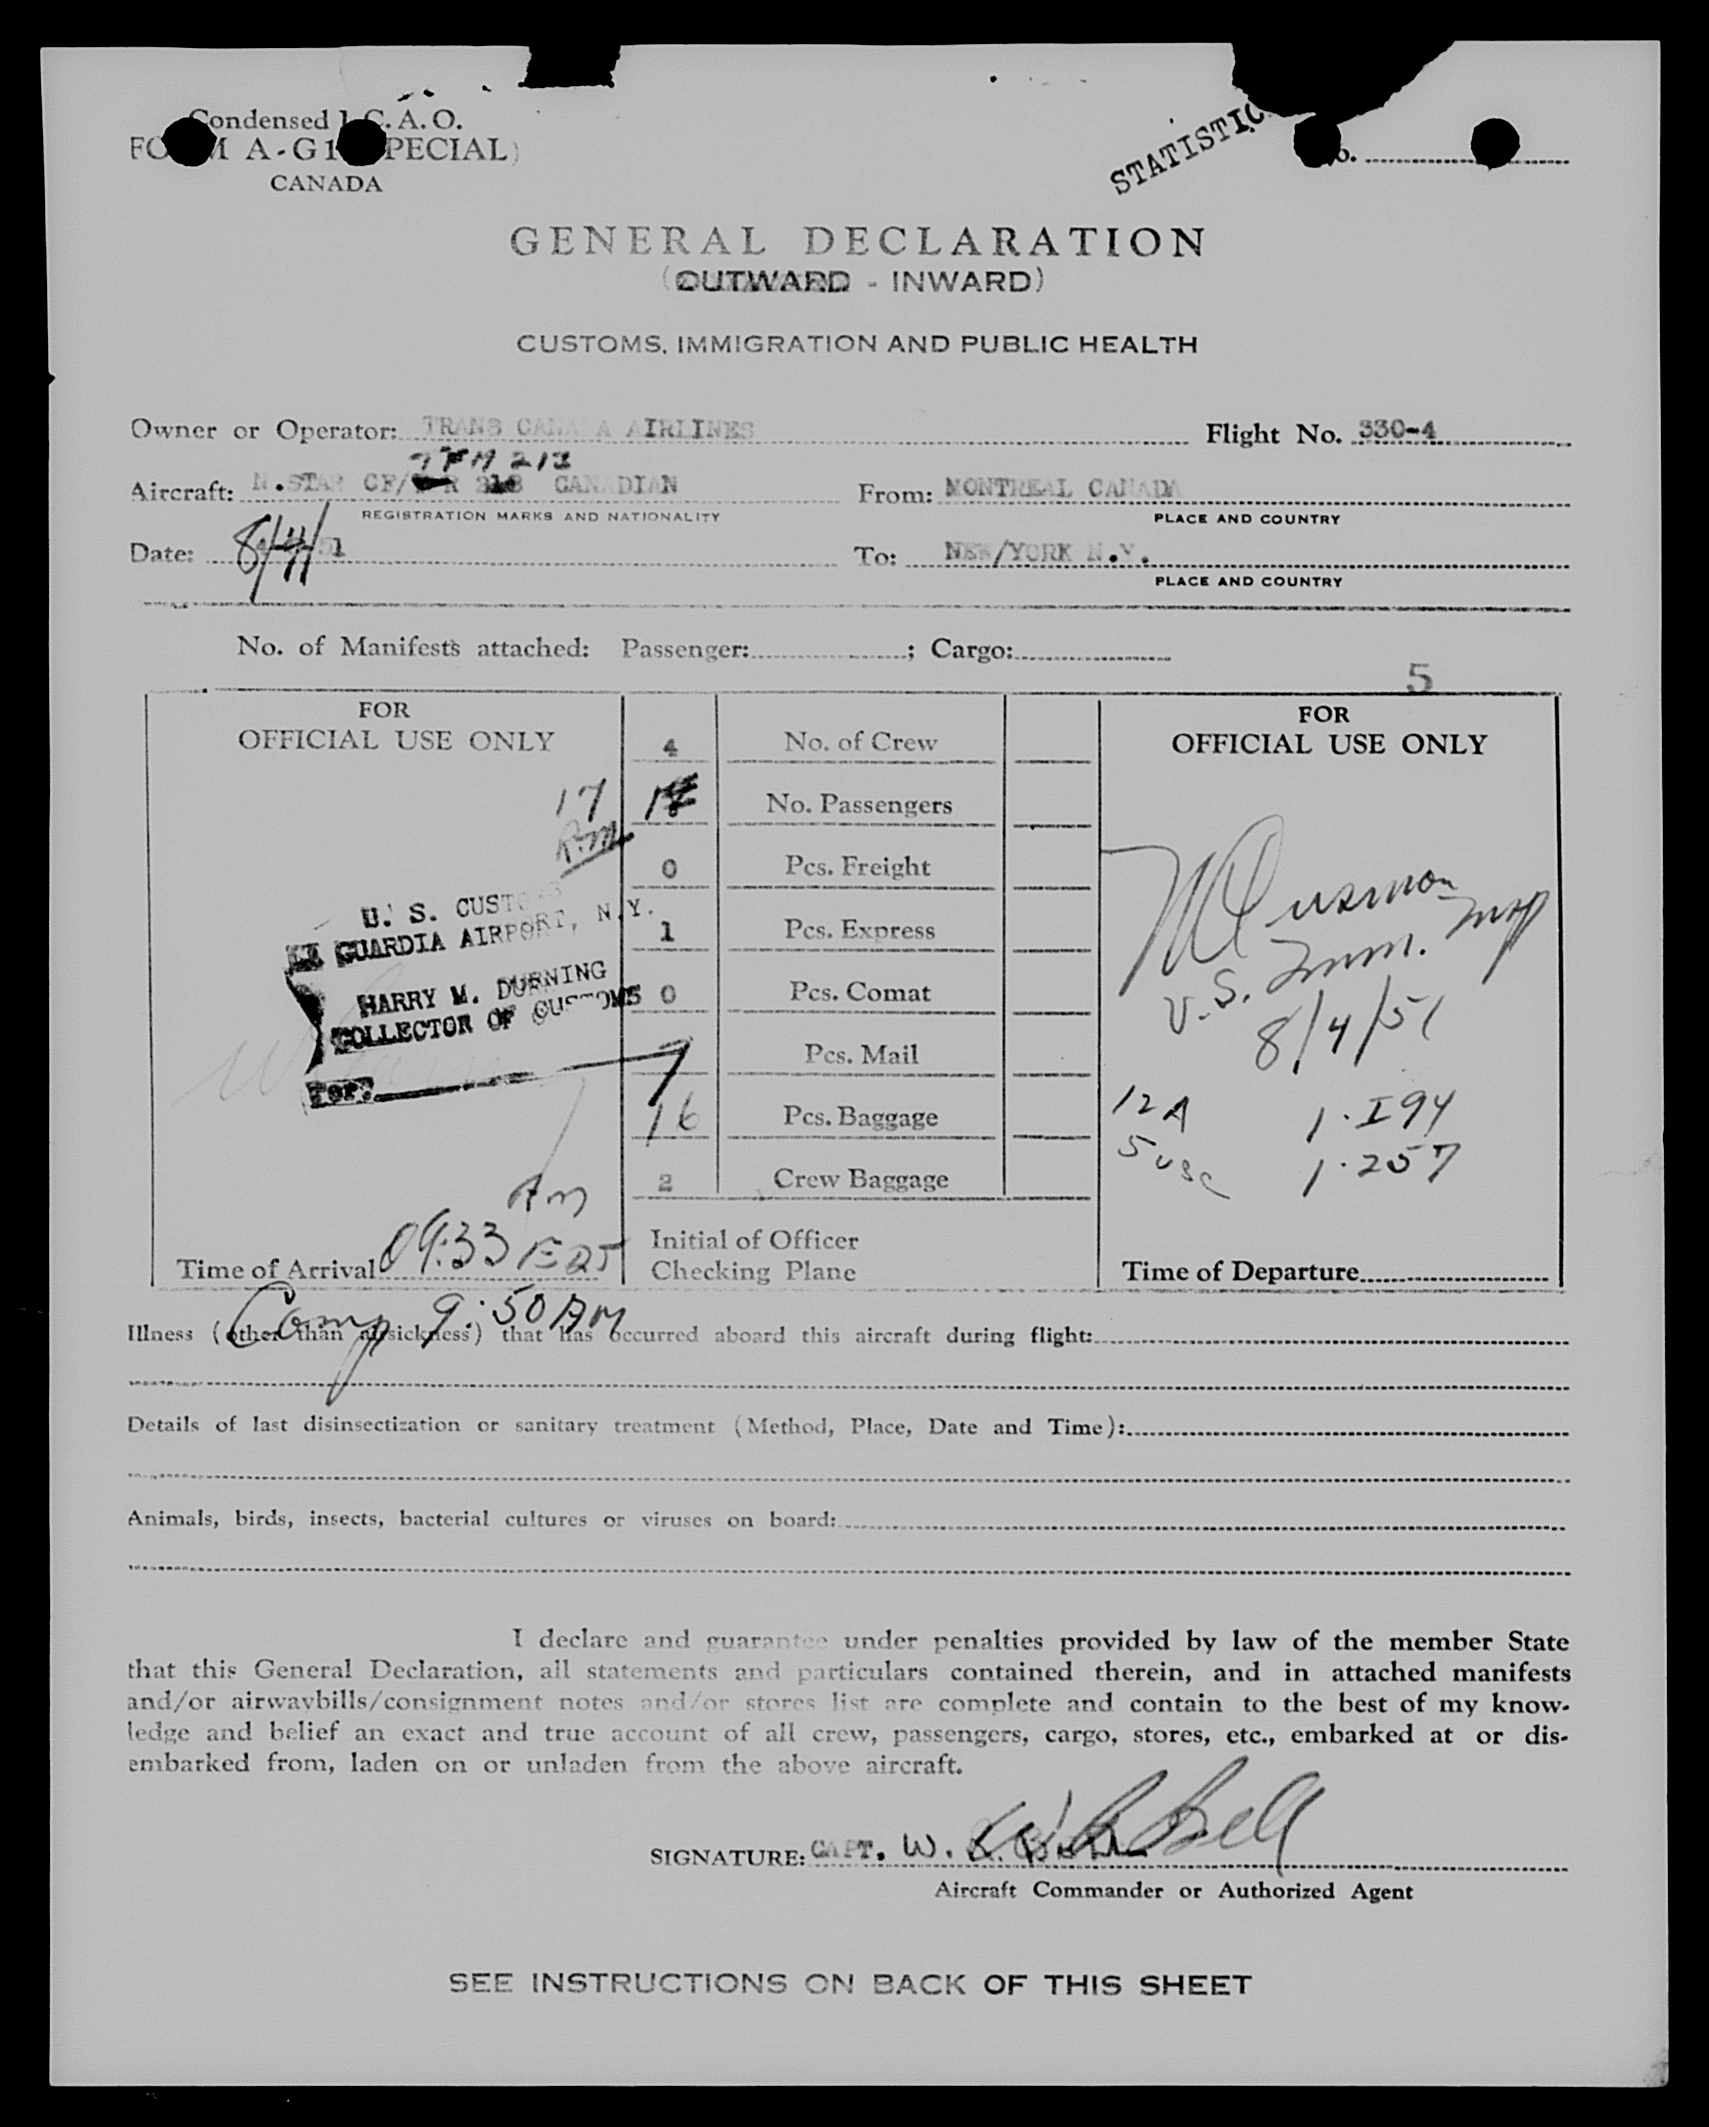 Condensed I. C. A. O.
A-G1
CANADA
STATISTIC
GENERAL DECLARATION
(OUTWARD - INWARD)
CUSTOMS, IMMIGRATION AND PUBLIC HEALTH
Owner or Operator: TRANS CANADA AIRLINES Flight No. 330-4
TFM 213
Aircraft: N.STAR CF/ CANADIAN From: MONTREAL CANADA
REGISTRATION MARKS AND NATIONALITY PLACE AND COUNTRY
Date: 8/4/51 To: NEW/YORK N.Y.
PLACE AND COUNTRY
No. of Manifests attached: Passenger: ; Cargo:
5
FOR
OFFICIAL USE ONLY
4 No. of Crew
FOR
OFFICIAL USE ONLY
17 No. Passengers
R.m
0 Pcs. Freight
U. S. CUSTOMS
LA GUARDIA AIRPORT, N.Y.
1 Pcs. Express
HARRY M. DURNING
COLLECTOR OF CUSTOMS
0 Pcs. Comat
Pcs. Mail
Per:
16 Pcs. Baggage
2 Crew Baggage
U.S. Imm.
8/4/51
12 A 1. I94
5 USC 1. 257
Am
Time of Arrival 09:33
Initial of Officer
Checking Plane
Time of Departure
Comp 9:50 AM
Illness (other than airsickness) that has occurred aboard this aircraft during flight:
Details of last disinsectization or sanitary treatment (Method, Place, Date and Time):
Animals, birds, insects, bacterial cultures or viruses on board:
I declare and guarantee under penalties provided by law of the member State
that this General Declaration, all statements and particulars contained therein, and in attached manifests
and/or airwaybills/consignment notes and/or stores list are complete and contain to the best of my know-
ledge and belief an exact and true account of all crew, passengers, cargo, stores, etc., embarked at or dis-
embarked from, laden on or unladen from the above aircraft.
SIGNATURE: CAPT. W. Bell
Aircraft Commander or Authorized Agent
SEE INSTRUCTIONS ON BACK OF THIS SHEET